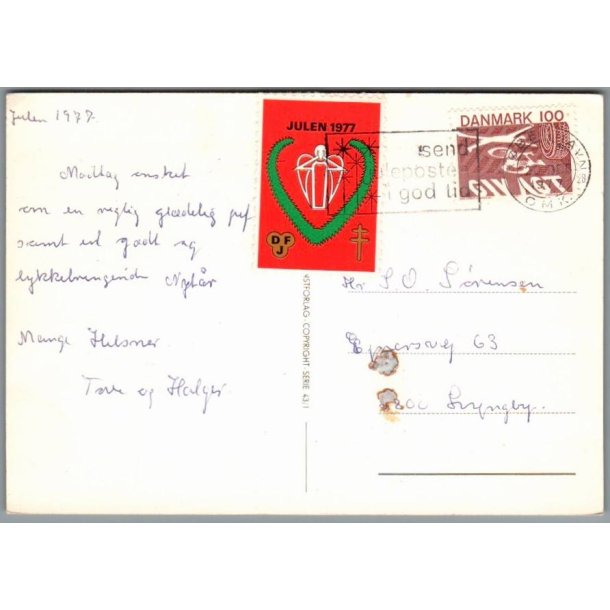 Julen 1977.
Modtag ønsket
om en rigtig glædelig jul
samt et godt og
lykkebringende Nytår
Mange Hilsner
Tove og Holger
JULEN 1977
DFJ
DANMARK 100
GIV AGT
send
juleposten
i god tid
KØBENHAVN
OMK.
NSTFORLAG COPYRIGHT SERIE 43/1
Hr. S. O. Sørensen
Ejnarsvej 63
2800 Lyngby.